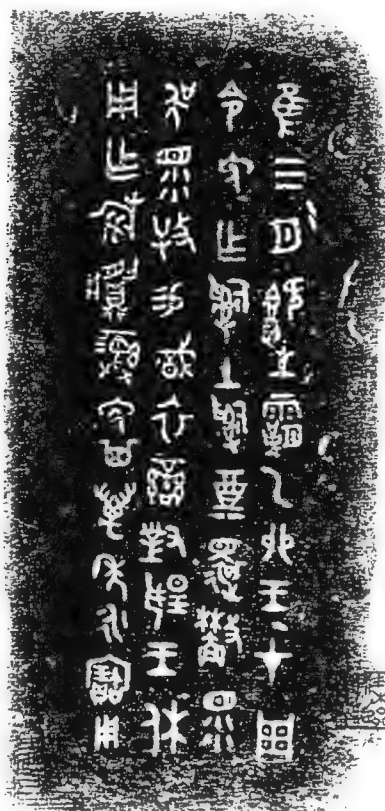 隹三月既生霸乙卯王才周
令免乍𤔲土𤔲奠還眔
吳眔牧易戠衣䜌對揚王休
用乍旅彝免其萬年永寶用